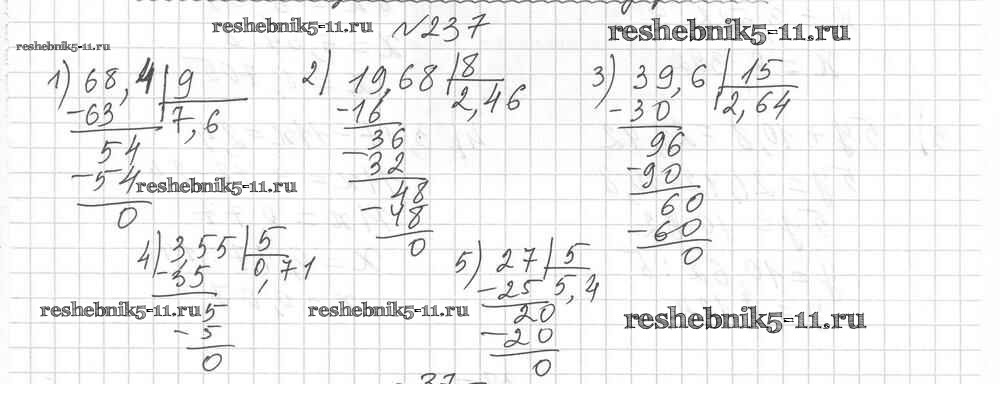 reshebnik5-11.ru №237 reshebnik5-11.ru
reshebnik5-11.ru
1) 68,4 | 9
-63 7,6
54
-54
0
2) 19,68 | 8
-16 2,46
36
-32
48
-48
0
3) 39,6 | 15
-30 2,64
96
-90
60
-60
0
reshebnik5-11.ru
4) 3,55 | 5
-35 0,71
5
-5
0
5) 27 | 5
-25 5,4
20
-20
0
reshebnik5-11.ru reshebnik5-11.ru reshebnik5-11.ru